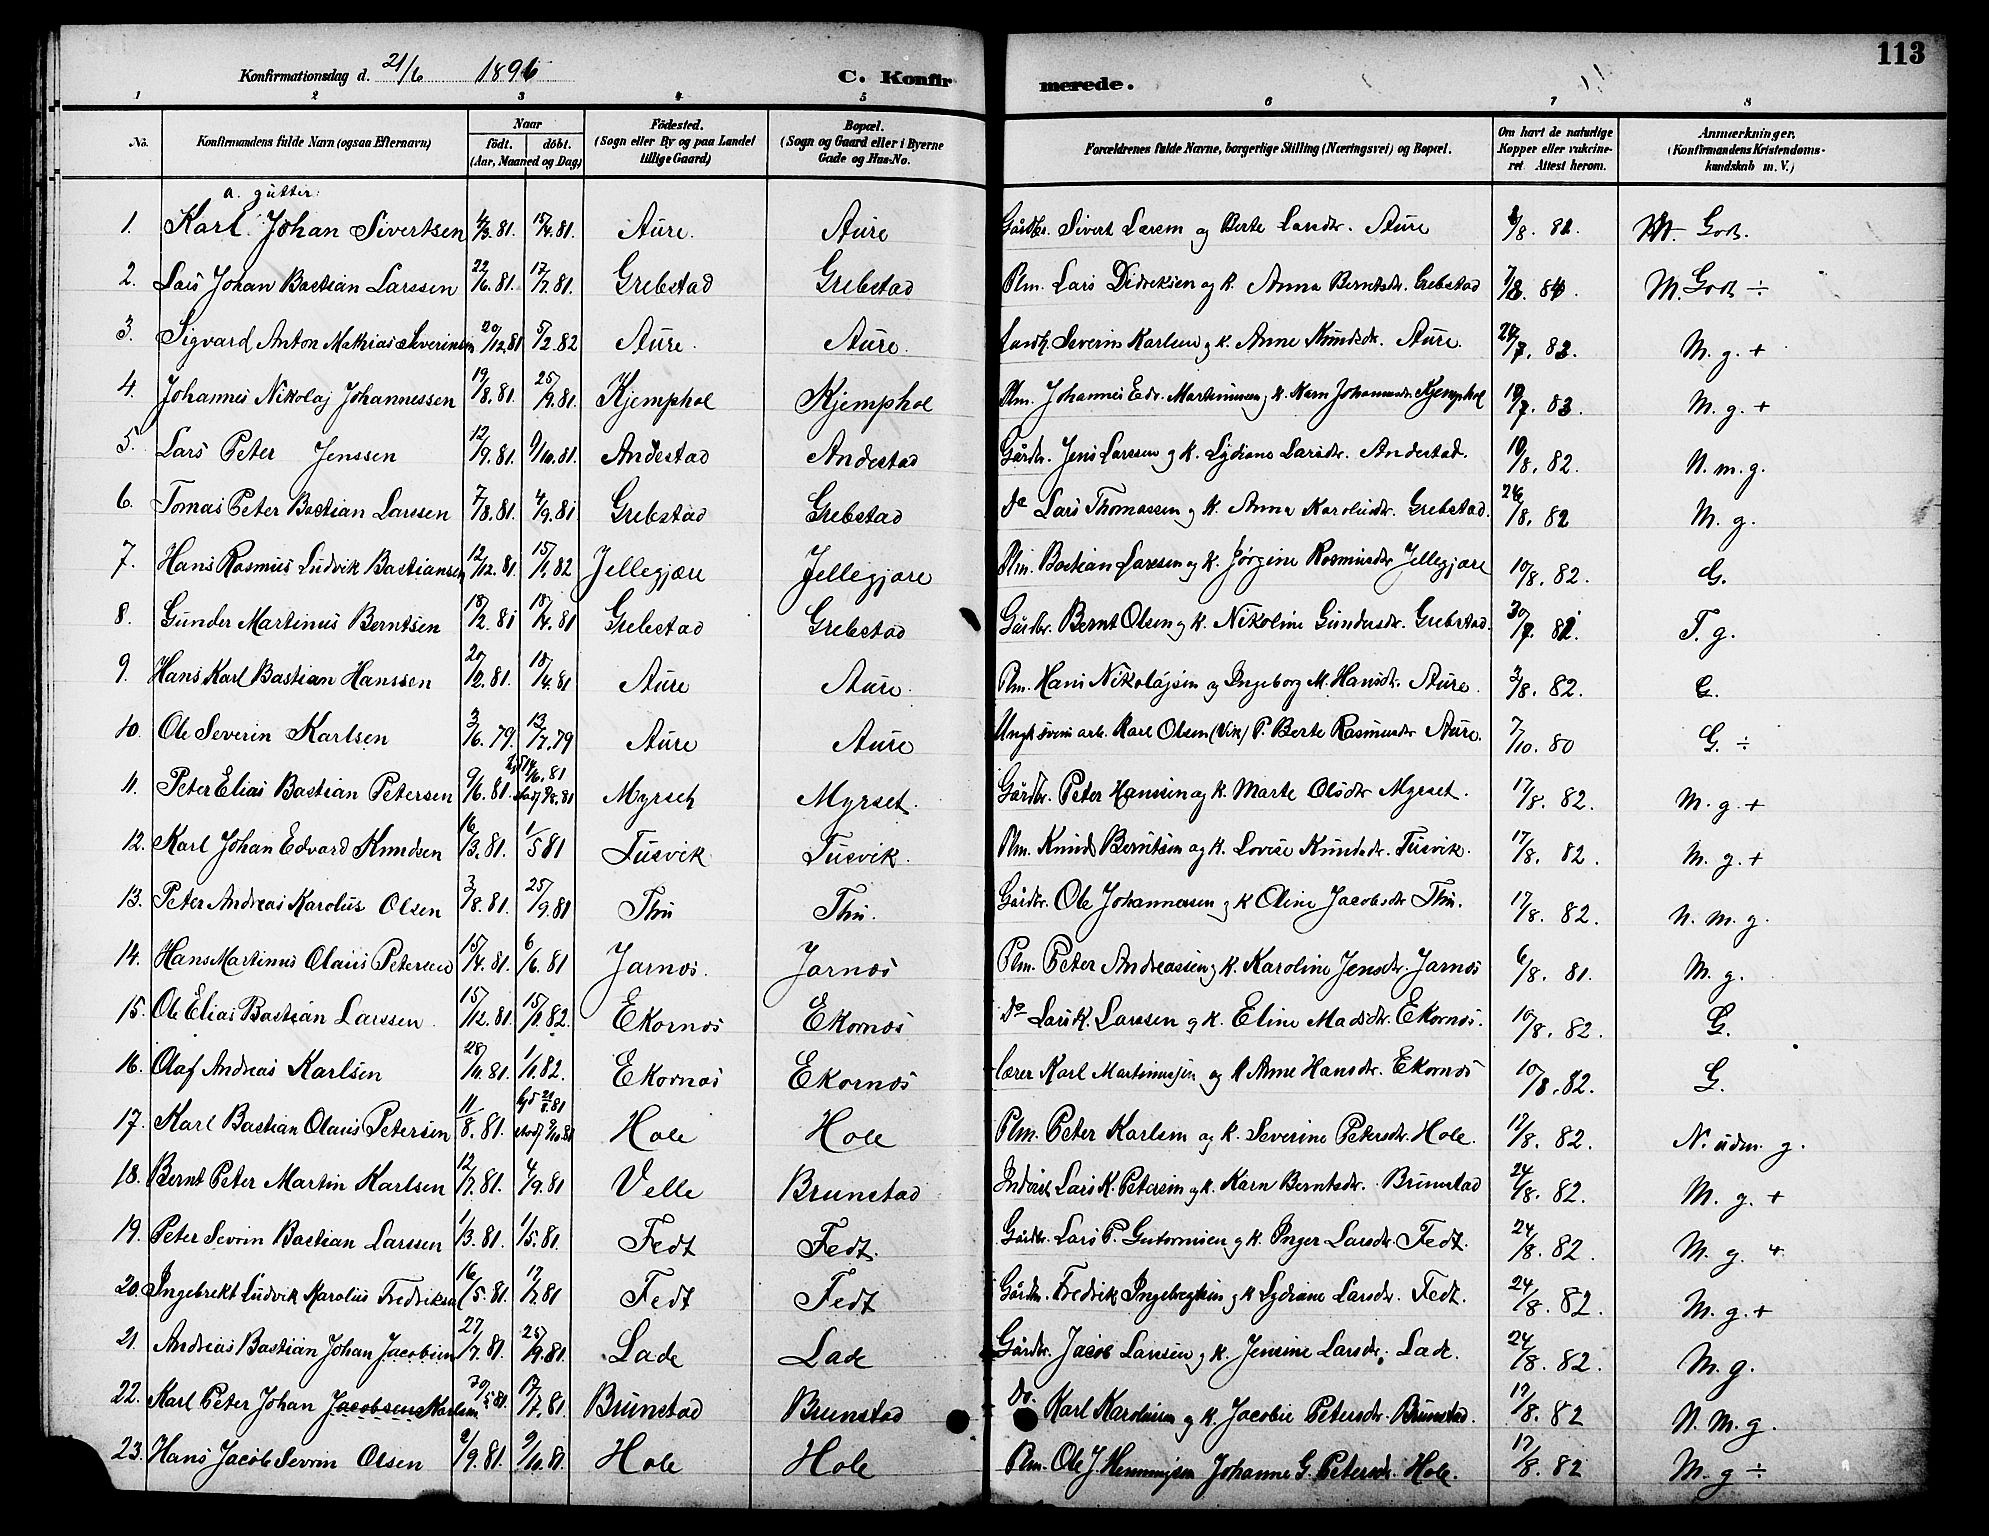 113
Konfirmationsdag d. 21/6 1896 C. Konfirmerede.
1 2 3 4 5 6 7 8
No. Konfirmandens fulde Navn (ogsaa Efternavn) Naar født. døbt. (Aar, Maaned og Dag) Fødested. (Sogn eller By og paa Landet tillige Gaard) Bopæl. (Sogn og Gaard eller i Byerne Gade og Hus-No. Forældrenes fulde Navne, borgerlige Stilling (Næringsvei) og Bopæl. Om havt de naturlige Kopper eller vakcineret Attest herom. Anmærkninger. (Konfirmandens Kristendomskundskab m. V.)
a. gutter:
1. Karl Johan Sivertsen 4/3. 81. 15/4. 81. Aure. Aure Gårdbr. Sivert Larsen og Berte Larsdr. Aure /8. 82. Godt.
2. Lars Johan Bastian Larssen 22/6. 81. 17/7. 81. Grebstad Grebstad Plm. Lars Didreksen og k. Anna Berntsdr. Grebstad 7/8. 84. M. Godt ÷
3. Sigvard Anton Mathias Severinsen 20/12. 81 5/2. 82 Aure. Aure. Severin Karlsen og k. Anne Knudsdr. Aure. 24/7. 83. M. g. +
4. Johannes Nikolaj Johannessen 19/8. 81. 25/9. 81. Kjemphol Kjemphol Plm. Johannes Edv. Martinussen og k. Karn Johannesdr. Kjemphol 19/7. 83. M. g. +
5. Lars Peter Jenssen 12/9. 81. 9/10. 81. Andestad Andestad Gårdbr. Jens Larssen og k. Lydiane Larsdr. Andestad. 10/8. 82. N. m. g.
6. Tomas Peter Bastian Larssen 7/8. 81. 4/9. 81 Grebstad Grebstad do Lars Thomassen og k. Anna Karolusdr. Grebstad. 24/8. 82 M. g.
7. Hans Rasmus Ludvik Bastiansen 12/12. 81. 15/1. 82 Jellegjære Jellegjære Plm. Bastian Larssen og k. Jørgine Rasmusdr. Jellegjære 10/8. 82. G.
8. Gunder Martinus Berntsen 18/2. 81 18/4. 81 Grebstad Grebstad Gårdbr. Bernt Olsen og k. Nikoline Gundersdr. Grebstad. 30/7. 82. T. g.
9. Hans Karl Bastian Hanssen 20/2. 81. 18/4. 81 Aure Aure. Plm. Hans Nikolajsen og Ingeborg M. Hansdr. Aure. 3/8. 82. G.
10. Ole Severin Karlsen 3/6. 79. 13/7. 79 Aure Aure Ungk. svein arb. Karl Olsen (Vik) P. Berte Rasmusdr Aure. 7/10. 80 G. ÷
11. Peter Elias Bastian Petersen 9/6. 81. 14/6. 81 stadf 9/8. 81 Myrset Myrset. Gårdbr. Peter Hanssen og k. Marte Olsdr Myrset. 17/8. 82. M. g. +
12. Karl Johan Edvard Knudsen 16/3. 81. 1/5 81 Tusvik Tusvik. Plm. Knud Berntsen og k. Lovise Knudsdr. Tusvik. 17/8. 82. M. g. +
13. Peter Andreas Karolus Olsen 3/8. 81. 25/9. 81 Thu Thu. Gårdbr. Ole Johannessen og k Oline Jacobsdr Thu. 17/8. 82. N. m. g.
14. Hans Martinus Olaus Petersen 15/4. 81. 6/6. 81 Jarnes. Jarnes Plm. Peter Andreassen og k. Karoline Jensdr. Jarnes 6/8. 81. M. g.
15. Ole Elias Bastian Larssen. 15/12. 81. 15/1. 82. Ekornes Ekornes do Lars K. Larssen og k. Eline Madsdr. Ekornes. 10/8. 82. G.
16. Olaf Andreas Karlsen 28/11. 81. 1/1. 82. Ekornes Ekornes Lærer Karl Martinussen og k Anne Hansdr. Ekornes 10/8. 82. G.
17. Karl Bastian Olaus Petersen 11/8. 81. 21/8. 81 stadf 9/10. 81 Hole Hole Plm. Peter Karlsen og k. Severine Petersdr. Hole. 17/8. 82. N. udm. g.
18. Bernt Peter Martin Karlsen 12/7. 81. 4/9. 81 Velle Brunstad Inderst Lars K. Petersen og k. Karn Berntsdr. Brunstad 24/8. 82. M. g. +
19. Peter Sevrin Bastian Larssen 1/3. 81. 1/5. 81. Fedt Fedt. Gårdbr. Lars P. Guttormsen og k. Inger Larsdr. Fedt. 24/8. 82. M. g. +
20. Ingebrekt Ludvik Karolus Fredriksen 16/5. 81. 17/7. 81 Fedt Fedt Gårdbr. Fredrik Ingebregtsen og k Lydiane Larsdr. Fedt. 24/8. 82. M. g. +
21. Andreas Bastian Johan Jacobsen 27/7. 81. 25/9. 81. Lade Lade Gårdbr. Jacob Larssen og k. Jensine Larsdr. Lade. 24/8. 82. M. g.
22. Karl Peter Johan Jacobsen Karlsen 30/5. 81. 17/7. 81. Brunstad Brunstad do. Karl Karolussen og k. Jacobie Petersdr. Brunstad. 17/8. 82 N. M. g.
23. Hans Jacob Sevrin Olsen 2/9. 81. 9/10. 81. Hole Hole Plm. Ole J. Hemmingsen Johanne G. Petersdr. Hole. 17/8. 82 M. g ÷